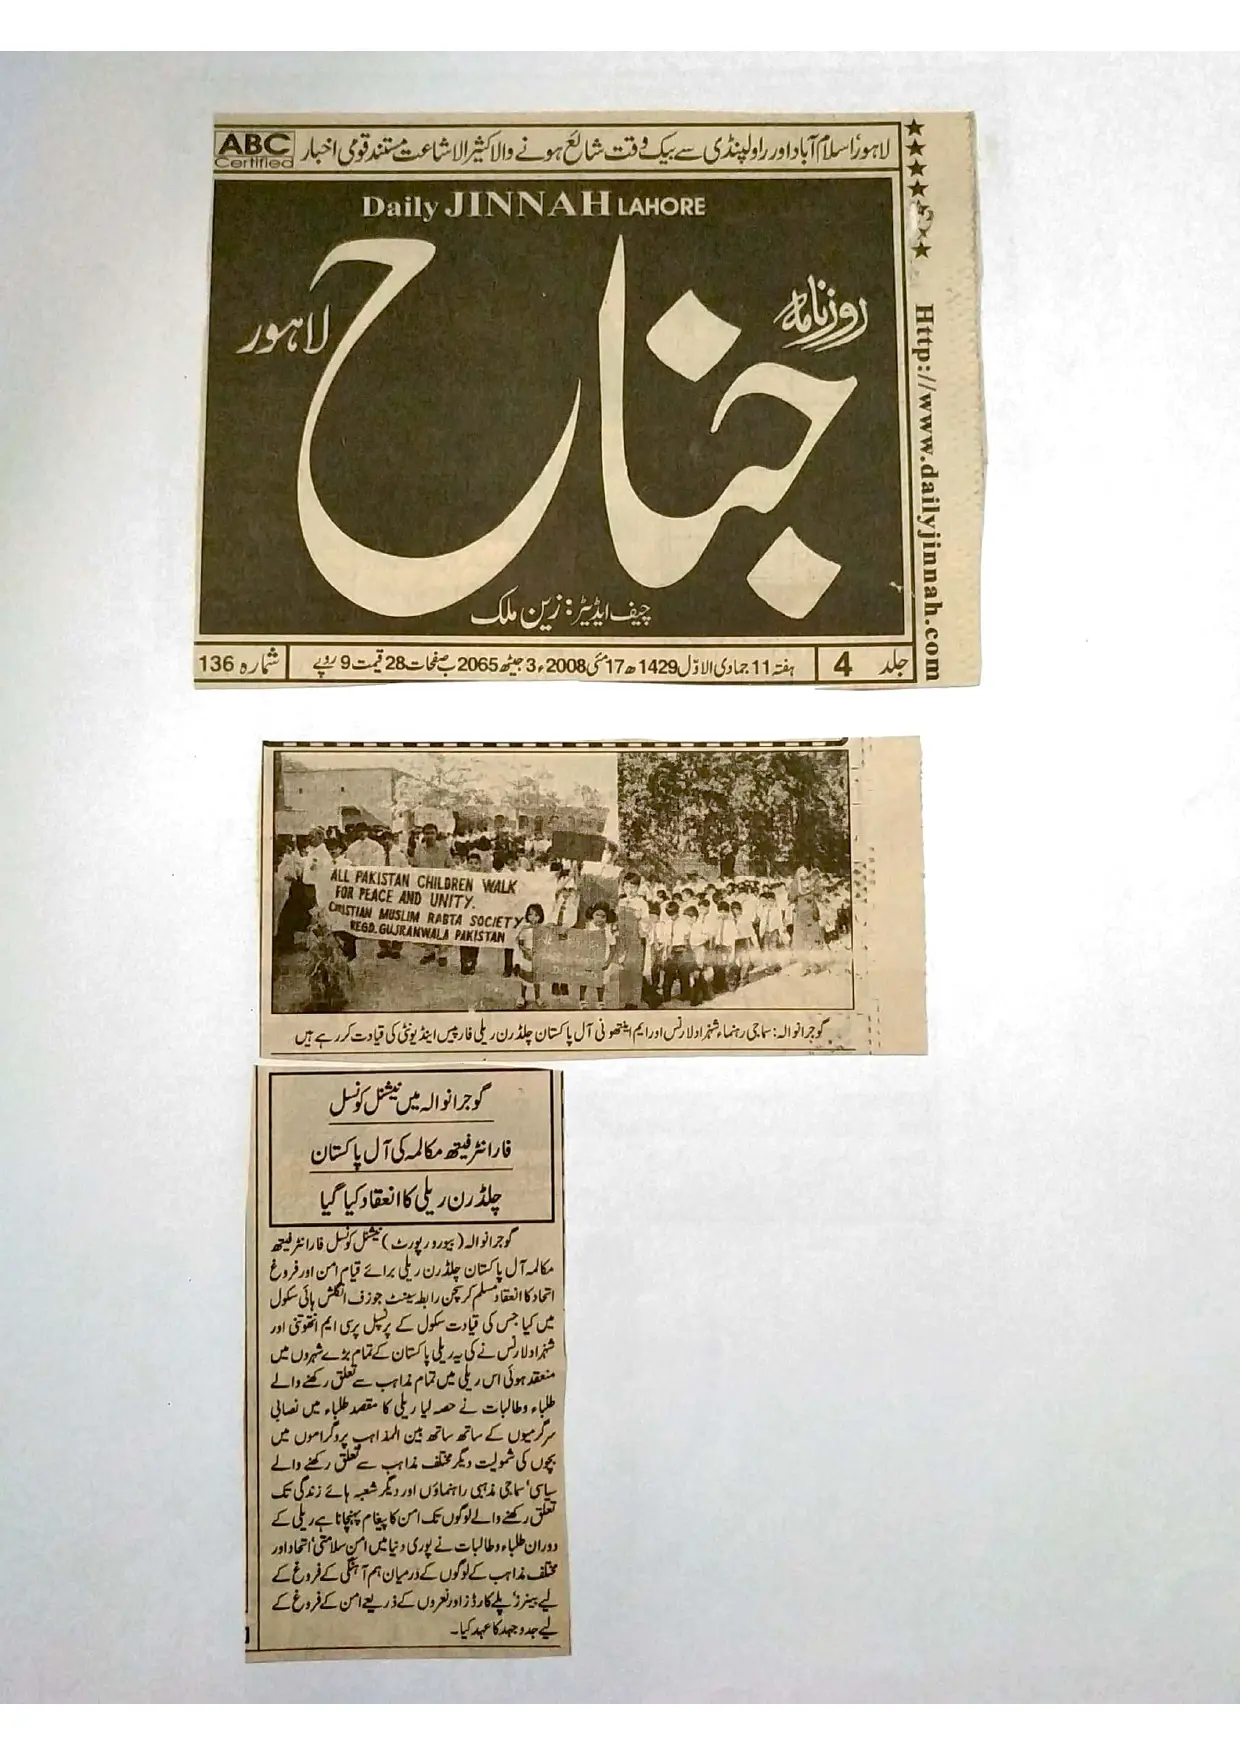 ABC
Certified
لاہور، اسلام آباد اور راولپنڈی سے بیک وقت شائع ہونے والا کثیر الاشاعت مستند قومی اخبار
Daily JINNAH LAHORE
روزنامہ
جناح
لاہور
چیف ایڈیٹر: زین ملک
Http://www.dailyjinnah.com
جلد 4
ہفتہ 11 جمادی الاوّل 1429ھ 17 مئی 2008ء 3 جیٹھ 2065 ب صفحات 28 قیمت 9 روپے
شمارہ 136
ALL PAKISTAN CHILDREN WALK
FOR PEACE AND UNITY.
CHRISTIAN MUSLIM RABTA SOCIETY
REGD. GUJRANWALA PAKISTAN
گوجرانوالہ: سماجی رہنماء شہزاد لارنس اور ایم اینتھونی آل پاکستان چلڈرن ریلی فار پیس اینڈ یونٹی کی قیادت کر رہے ہیں
گوجرانوالہ میں نیشنل کونسل
فار انٹر فیتھ مکالمہ کی آل پاکستان
چلڈرن ریلی کا انعقاد کیا گیا
گوجرانوالہ (بیورو رپورٹ) نیشنل کونسل فار انٹر فیتھ
مکالمہ آل پاکستان چلڈرن ریلی برائے قیام امن اور فروغ
اتحاد کا انعقاد مسلم کرسچن رابطہ سینٹ جوزف انگلش ہائی سکول
میں کیا جس کی قیادت سکول کے پرنسپل پرسی ایم انتھونی اور
شہزاد لارنس نے کی یہ ریلی پاکستان کے تمام بڑے شہروں میں
منعقد ہوئی اس ریلی میں تمام مذاہب سے تعلق رکھنے والے
طلباء وطالبات نے حصہ لیا ریلی کا مقصد طلباء میں نصابی
سرگرمیوں کے ساتھ ساتھ بین المذاہب پروگراموں میں
بچوں کی شمولیت دیگر مختلف مذاہب سے تعلق رکھنے والے
سیاسی‘ سماجی مذہبی راہنماؤں اور دیگر شعبہ ہائے زندگی تک
تعلق رکھنے والے لوگوں تک امن کا پیغام پہنچانا ہے ریلی کے
دوران طلباء وطالبات نے پوری دنیا میں امن سلامتی‘ اتحاد اور
مختلف مذاہب کے لوگوں کے درمیان ہم آہنگی کے فروغ کے
لیے بینرز‘ پلے کارڈز اور نعروں کے ذریعے امن کے فروغ کے
لیے جدوجہد کا عہد کیا۔